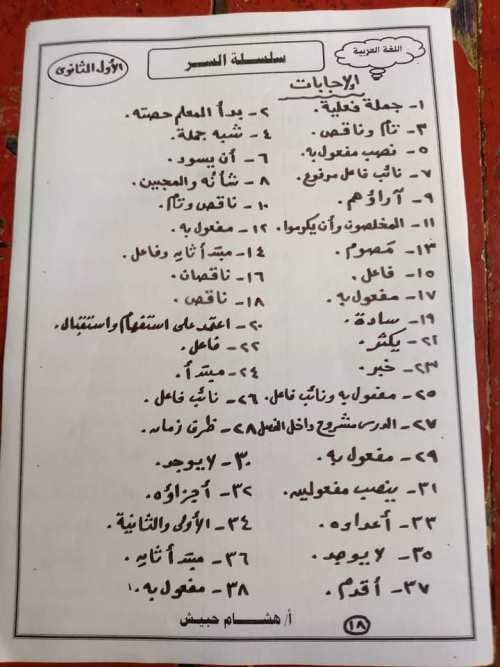 اللغة العربية
سلسلة السر
الأول الثانوى
الاجابات
١- جملة فعلية. ٢- بدأ المعلم حصته.
٣- تام وناقص. ٤- شبه جملة.
٥- نصب مفعول به. ٦- أن يسود.
٧- نائب فاعل مرفوع. ٨- شأنه والمجبين.
٩- آراؤهم. ١٠- ناقص وتام.
١١- المخلصون وأن يكونوا. ١٢- مفعول به.
١٣- مَصوم. ١٤- مبتدأ ثانٍ وفاعل.
١٥- فاعل. ١٦- ناقصان
١٧- مفعول به. ١٨- ناقص.
١٩- سادة. ٢٠- اعتمد على استفهام واستقبال.
٢١- يكثر. ٢٢- فاعل.
٢٣- خبر. ٢٤- مبتدأ.
٢٥- مفعول به ونائب فاعل. ٢٦- نائب فاعل.
٢٧- الدرس مشروح داخل الفصل ٢٨- ظرف زمان.
٢٩- مفعول به. ٣٠- لا يوجد.
٣١- ينصب مفعولين. ٣٢- أجزاؤه.
٣٣- أعداؤه. ٣٤- الأولى والثانية.
٣٥- لا يوجد. ٣٦- مبتدأ ثانٍ.
٣٧- أقدم. ٣٨- مفعول به.
أ/ هشام حبيش
١٨